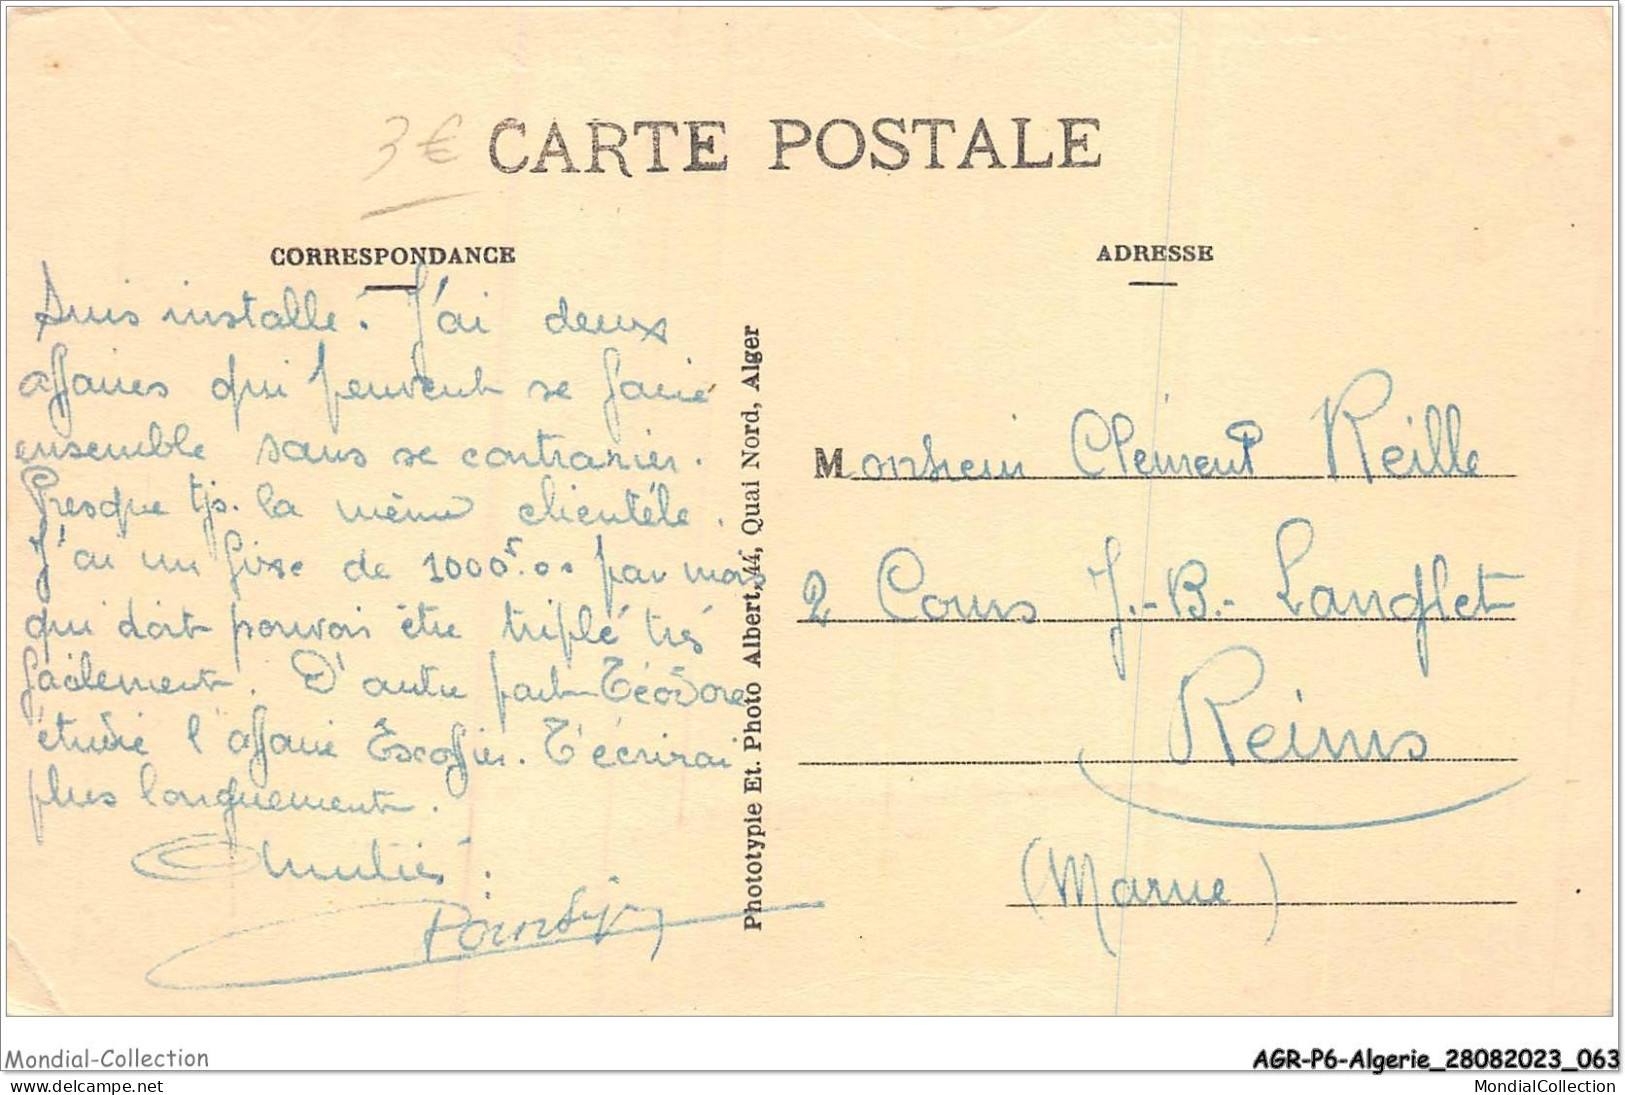 3€
CARTE POSTALE
CORRESPONDANCE
Suis installé. J'ai deux
affaires qui peuvent se faire
ensemble sans se contrarier.
Presque tjs. la même clientèle.
J'ai un fixe de 1000f.00 par mois
qui doit pouvoir être triplé très
facilement. D'autre part Téodore
étudie l'affaire Escoffier. T'écrirai
plus longuement.
Amitiés.
Phototypie Et. Photo Albert, 44, Quai Nord, Alger
ADRESSE
Monsieur Clément Reille
2 Cours J.-B.- Langlet
Reims
(Marne)
Mondial-Collection
AGR-P6-Algerie_28082023_063
www.delcampe.net
MondialCollection